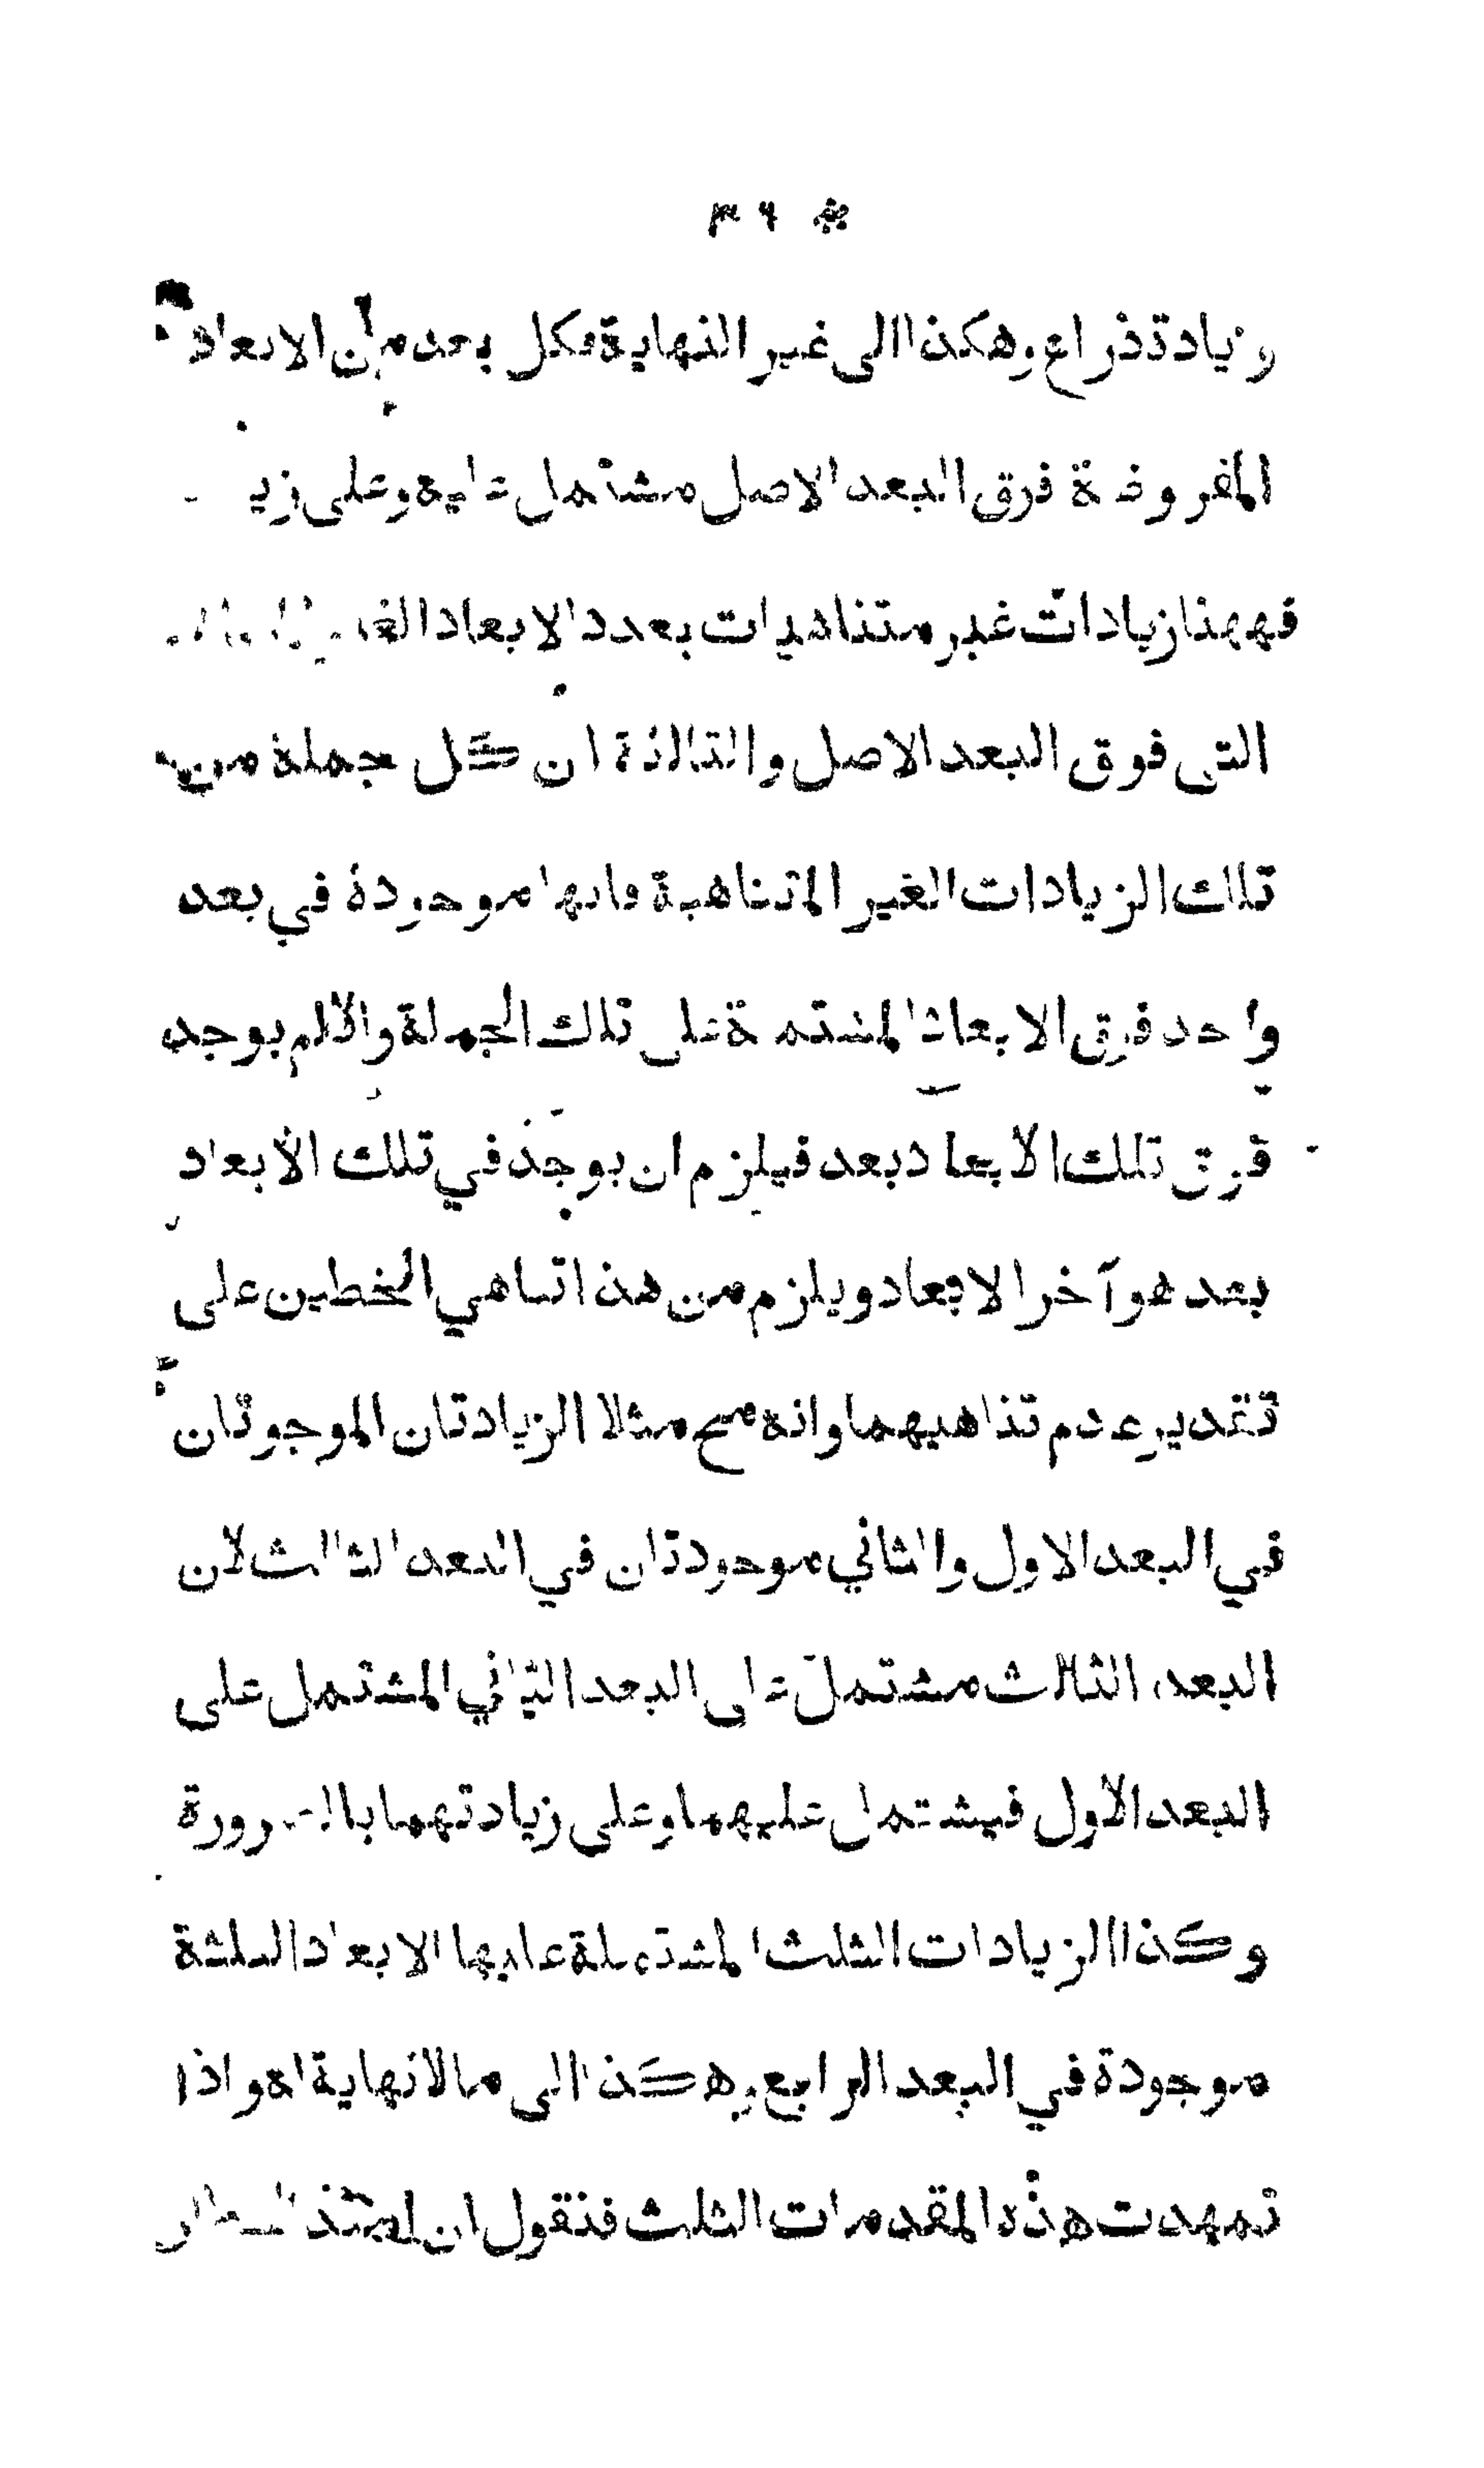 ٣٦
زيادة ذراع وهكذا الى غير النهاية فكل بعد من الابعاد
المفروضة فوق البعد الاصل مشتمل عليه وعلى
فههنا زيادات غير متناهيات بعدد الابعاد
التى فوق البعد الاصل والثالثة ان كل جملة من
تلك الزيادات الغير المتناهية فانها موجودة في بعد
واحد فوق الابعاد المشتملة على تلك الجملة والا لم يوجد
فوق تلك الابعاد بعد فيلزم ان يوجد في تلك الابعاد
بعد هو آخر الابعاد ويلزم من هذا تناهي الخطين على
تقدير عدم تناهيهما وانه مح مثلا الزيادتان الموجودتان
في البعد الاول والثاني موجودتان في البعد الثالث لان
البعد الثالث مشتمل على البعد الثاني المشتمل على
البعد الاول فيشتمل عليهما وعلى زيادتهما بالضرورة
وكذا الزيادات الثلث المشتملة عليها الابعاد الثلثة
موجودة في البعد الرابع وهكذا الى مالانهاية له واذا
تمهدت هذه المقدمات الثلث فنقول ان